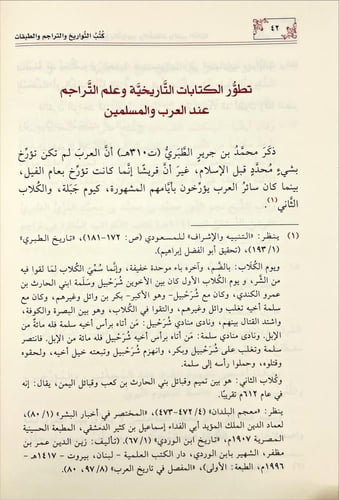 ٤٢
كُتُبُ التَّواريخِ والتراجمِ والطبقات
تطوُّر الكتابات التَّاريخيَّة وعلم التَّراجم
عند العرب والمسلمين
ذكَرَ محمَّدُ بن جريرٍ الطَّبَريُّ (ت٣١٠هـ) أنَّ العربَ لم تكن تؤرِّخ
بشيءٍ مُحدَّدٍ قبل الإسلام، غيرَ أنَّ قريشًا إنَّما كانت تؤرِّخ بعام الفيل،
بينما كان سائرُ العرب يؤرِّخون بأيَّامهم المشهورة، كيوم جَبَلة، والكُلاب
الثَّاني(١).
(١) ينظر: «التنبيه والإشراف» للمسعودي (ص: ١٧٢-١٨١)، «تاريخ الطبري»
(١/ ١٩٣)، (تحقيق أبو الفضل إبراهيم).
ويوم الكُلاب: بالضَّم، وآخره باء موحدة خفيفة، وإنَّما سُمِّيَ الكُلاب لمَا لقوا فيه
من الشَّر، و يوم الكُلاب الأول كان بين الأخوين شُرَحبيل وسَلَمة ابني الحارث بن
عمرو الكندي، وكان مع شُرَحبيل- وهو الأكبر- بكر بن وائل وغيرهم، وكان مع
سلمة أخيه تغلب وائل وغيرهم، والتقوا في الكُلاب، وهو بين البصرة والكوفة،
واشتد القتال بينهم، ونادى منادي شُرَحبيل: مَن أتاه برأس أخيه سلمة فله مائةٌ من
الإبل. ونادى منادي سلمة: مَن أتاه برأس أخيه شُرَحبيل فله مائة من الإبل. فانتصر
سلمة وتغلب على شُرَحبيل وبكر، وانهزم شُرَحبيل وتبعته خيل أخيه، ولحقوه
وقتلوه، وحملوا رأسه إلى سلمة.
وكُلاب الثاني: هو بين تميم وقبائل بني الحارث بن كعب وقبائل اليمن، يقال: إنه
في عام ٦١٢م تقريبًا.
ينظر: «معجم البلدان» (٤/ ٤٧٢-٤٧٣)، «المختصر في أخبار البشر» (١/ ٨٠)،
لعماد الدين الملك المؤيد أبي الفداء إسماعيل بن كثير الدمشقي، المطبعة الحسينية
المصرية ١٩٠٧م، «تاريخ ابن الوردي» (١/ ٦٧). (تأليف: زين الدين عمر بن
مظفر، الشهير بابن الوردي، دار الكتب العلمية - لبنان، بيروت - ١٤١٧هـ -
١٩٩٦م، الطبعة: الأولى)، «المفصل في تاريخ العرب» (٨/ ٩٧، ٨٠).